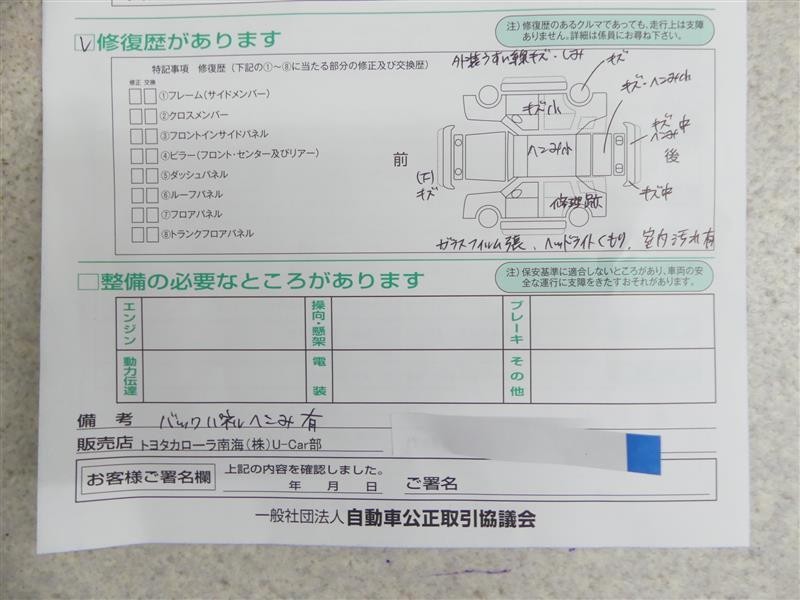 ✓修復歴があります
注）修復歴のあるクルマであっても、走行上は支障
ありません。詳細は係員にお尋ね下さい。
特記事項　修復歴（下記の①〜⑧に当たる部分の修正及び交換歴）
修正 交換
①フレーム（サイドメンバー）
②クロスメンバー
③フロントインサイドパネル
④ピラー（フロント・センター及びリアー）
⑤ダッシュパネル
⑥ルーフパネル
⑦フロアパネル
⑧トランクフロアパネル
外装うすい線キズ・しみ
キズ
キズ・ヘこみ小
キズ小
キズ中
ヘこみ
ヘこみ小
前
後
(下)
キズ
キズ中
修理跡
ガラスフィルム張、ヘッドライトくもり、室内汚れ有
□整備の必要なところがあります
注）保安基準に適合しないところがあり、車両の安
全な運行に支障をきたすおそれがあります。
エンジン
操向・懸架
ブレーキ
動力伝達
電装
その他
備考 バックパネルヘこみ有
販売店 トヨタカローラ南海(株)U-Car部
お客様ご署名欄
上記の内容を確認しました。
年　月　日
ご署名
一般社団法人 自動車公正取引協議会